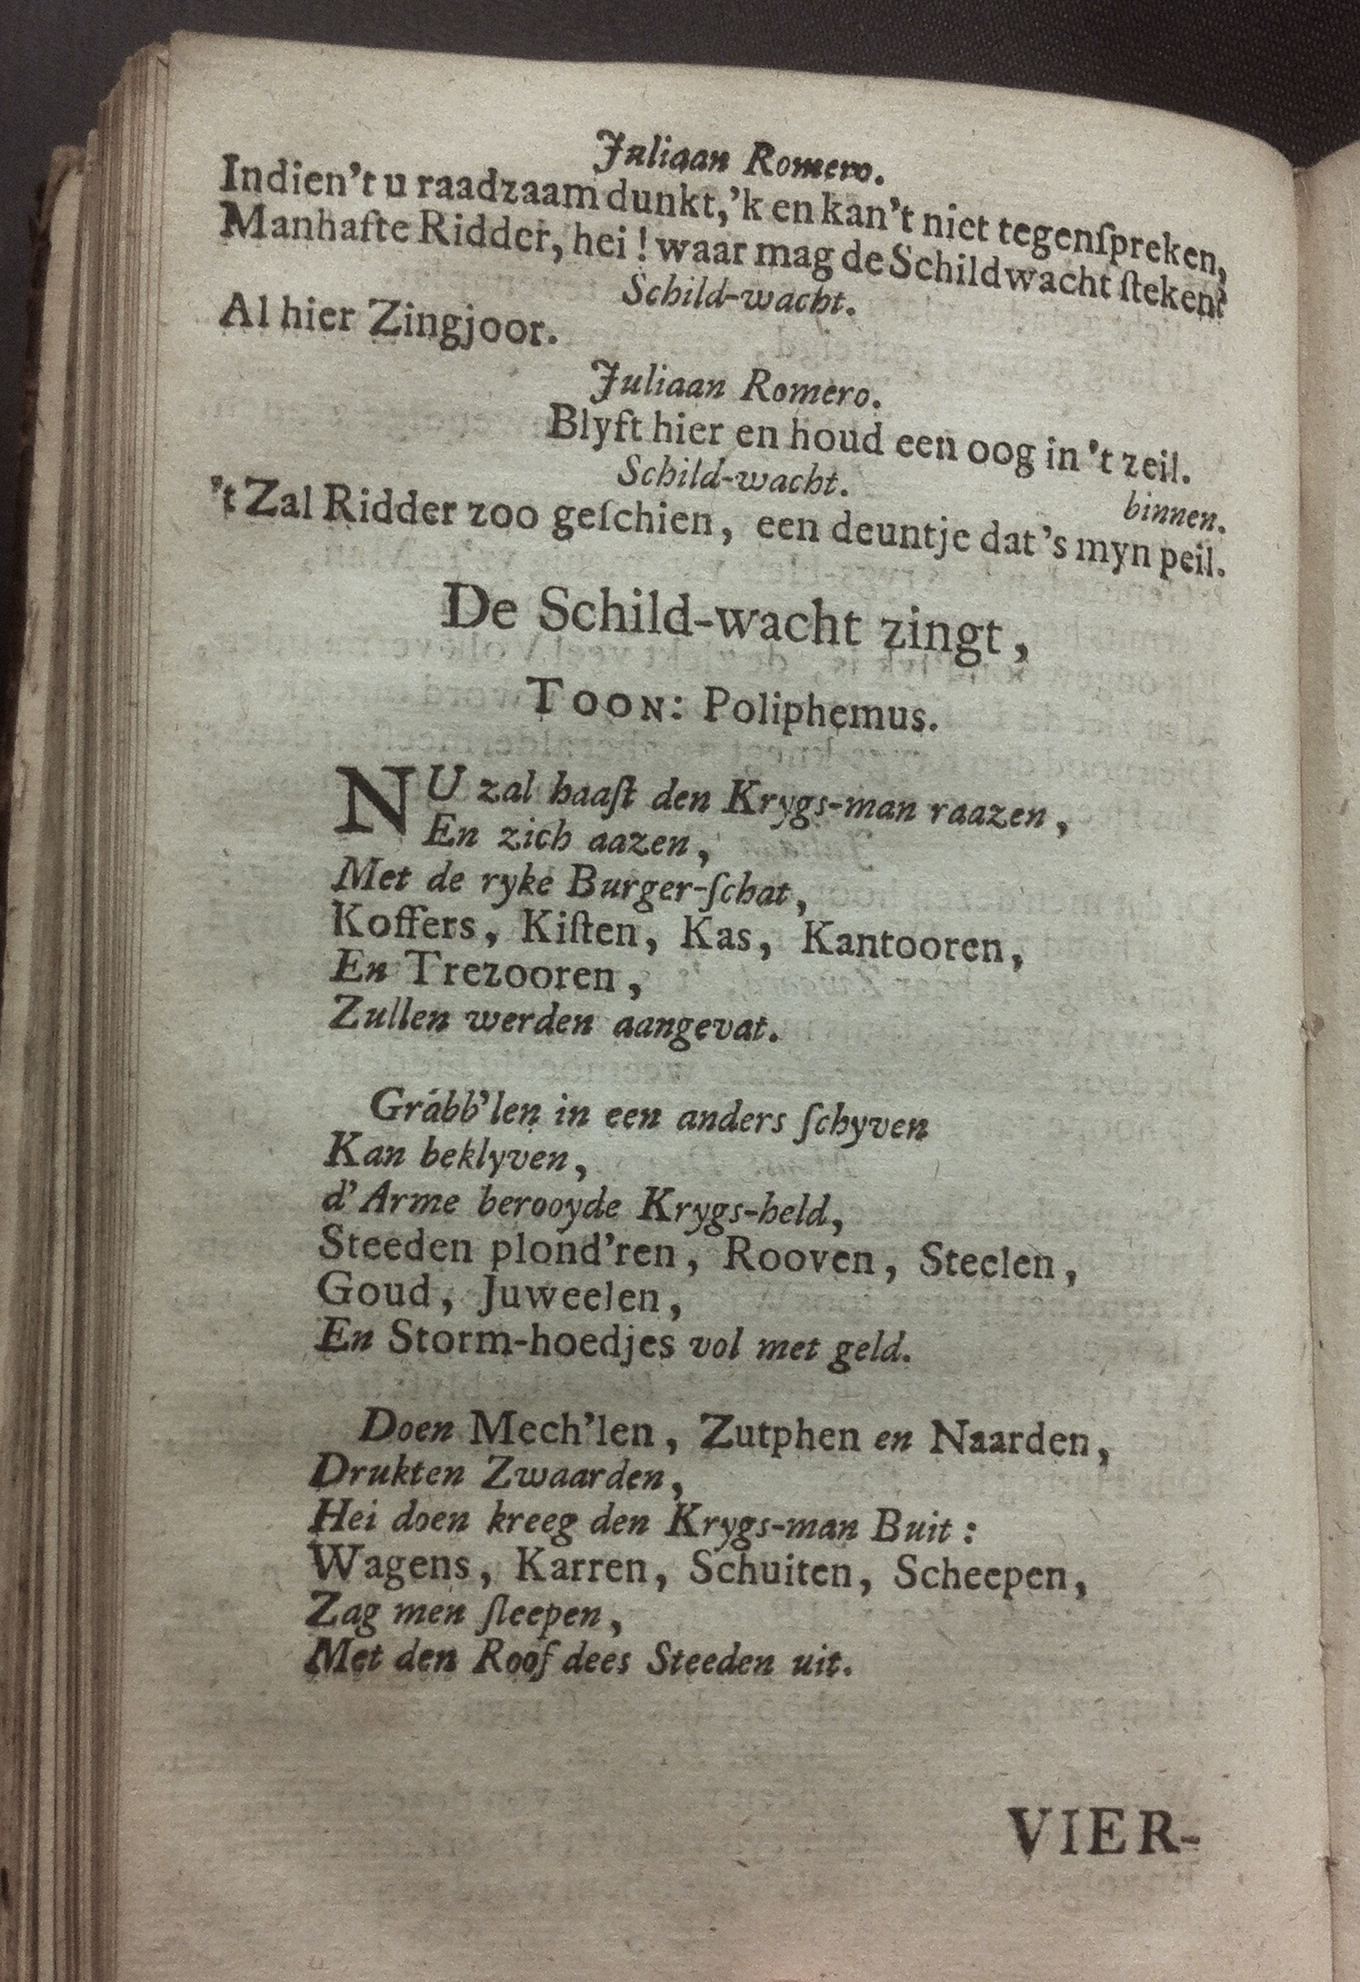 Juliaan Romero.
Indien't u raadzaam dunkt,'k en kan't niet tegenſpreken,
Manhafte Ridder, hei! waar mag de Schildwacht ſteken?
Schild-wacht.
Al hier Zingjoor.
Juliaan Romero.
Blyft hier en houd een oog in 't zeil.
binnen.
Schild-wacht.
't Zal Ridder zoo geſchien, een deuntje dat's myn peil.
De Schild-wacht zingt,
TOON: Poliphemus.
NU zal haaſt den Krygs-man raazen,
En zich aazen,
Met de ryke Burger-ſchat,
Koffers, Kiſten, Kas, Kantooren,
En Trezooren,
Zullen werden aangevat.
Grább'len in een anders ſchyven
Kan beklyven,
d'Arme berooyde Krygs-held,
Steeden plond'ren, Rooven, Steelen,
Goud, Juweelen,
En Storm-hoedjes vol met geld.
Doen Mech'len, Zutphen en Naarden,
Drukten Zwaarden,
Hei doen kreeg den Krygs-man Buit:
Wagens, Karren, Schuiten, Scheepen,
Zag men ſleepen,
Met den Roof dees Steeden uit.
VIER-